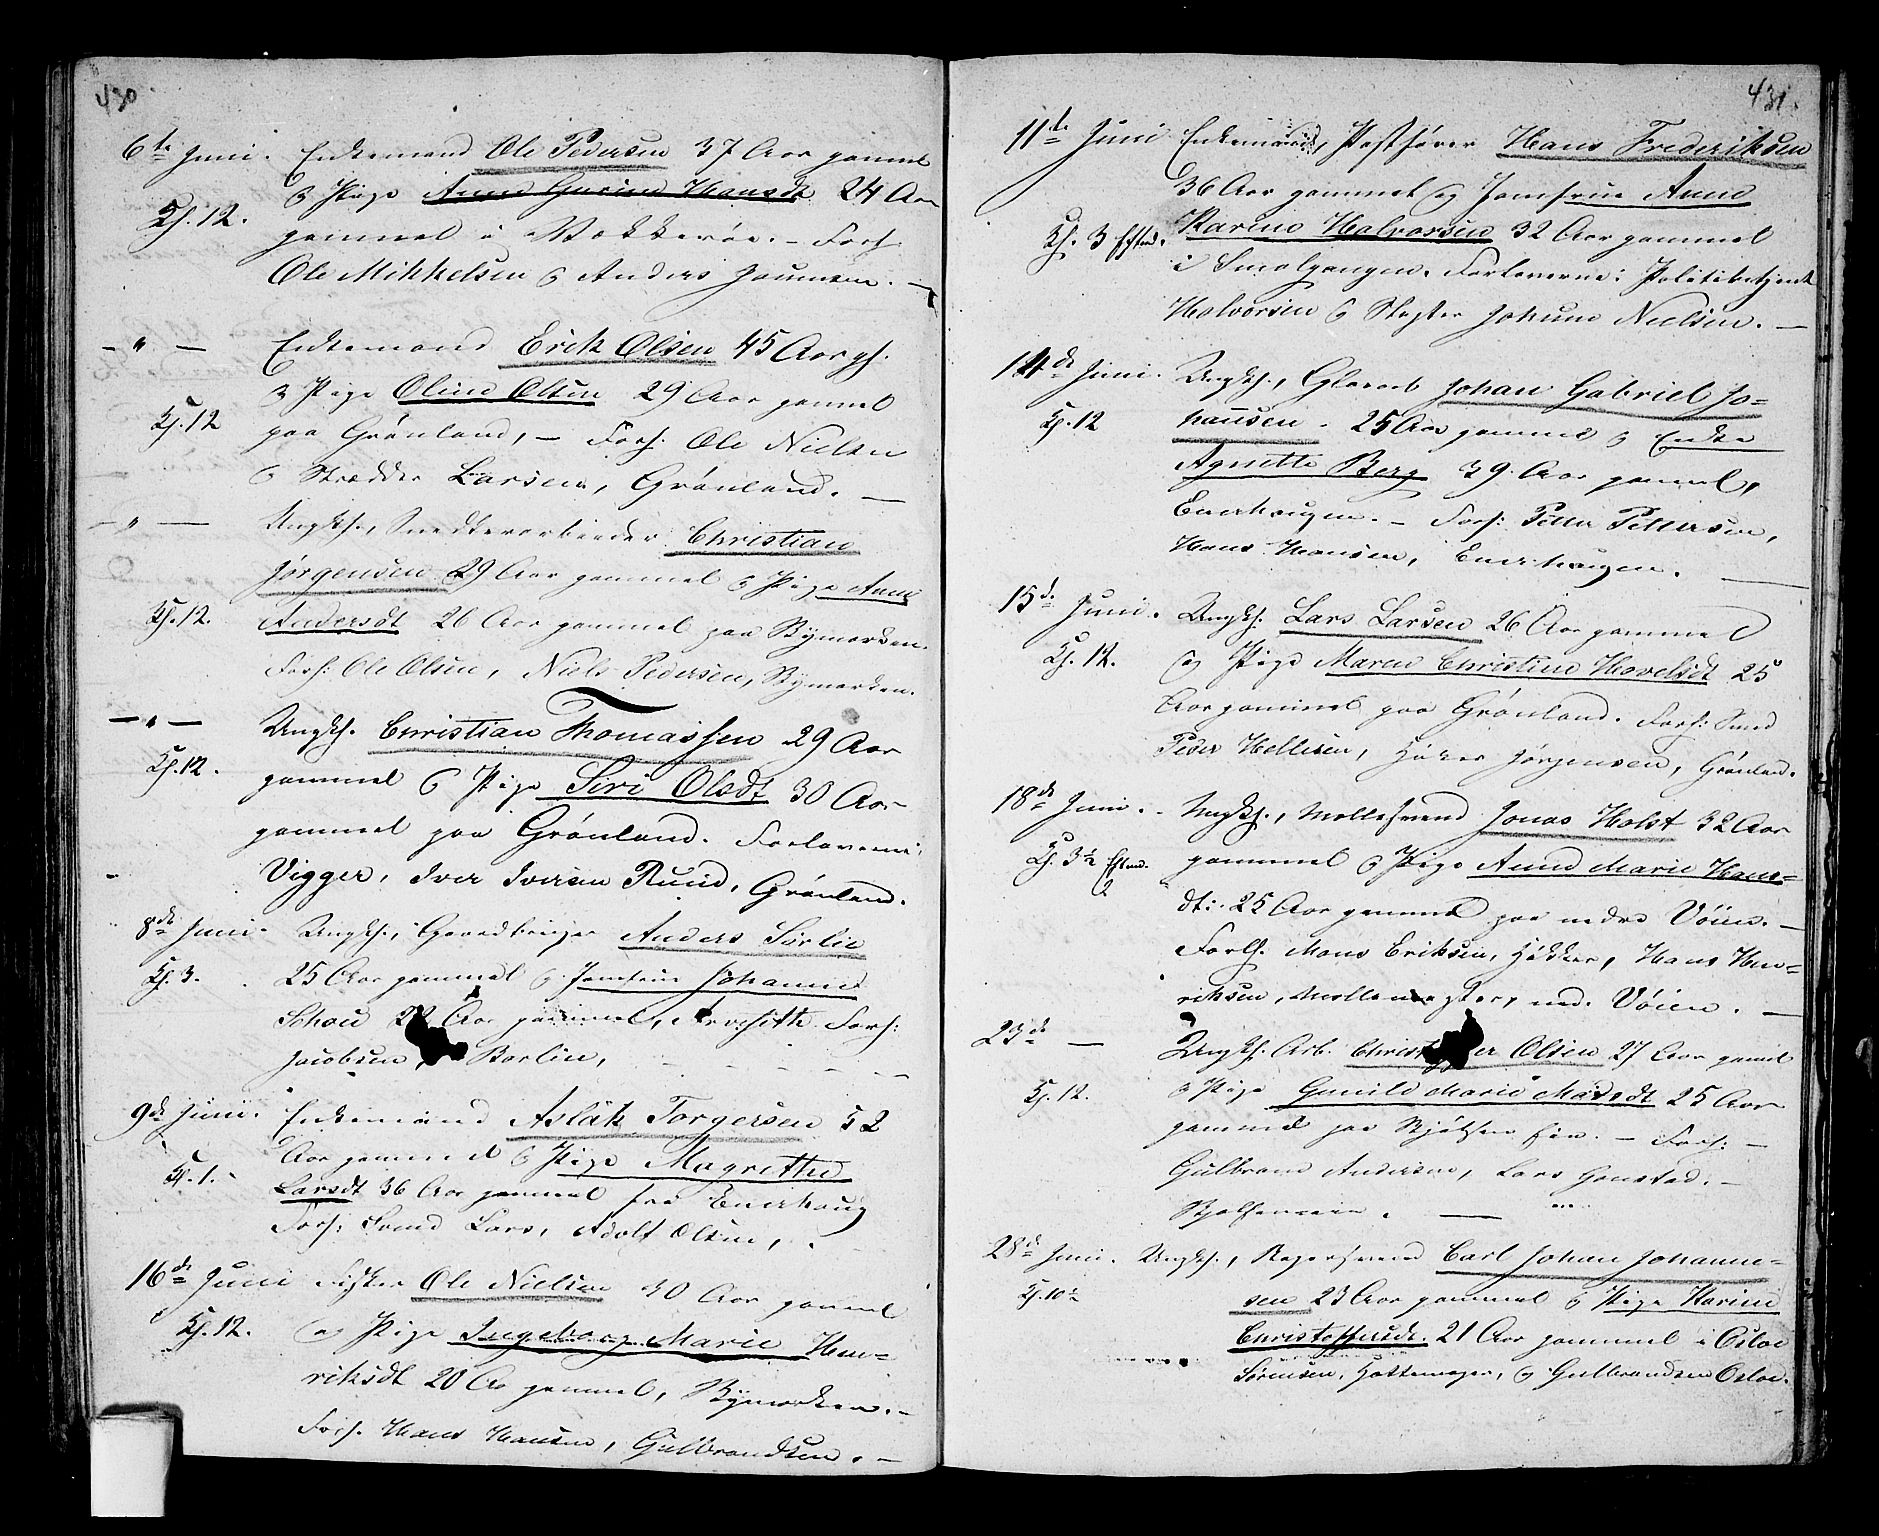 430
6te Juni. Enkemand Ole Pedersen 37 Aar gammel
& Pige Anne Gurine Hansdt 24 Aar
Kl. 12. gammel i Vækkerøe. – Forl.
Ole Mikkelsen & Anders
– " – Enkemand Erik Olsen 45 Aar gl.
& Pige Oline Olsen 29 Aar gammel
Kl. 12 paa Grønland, – Forl: Ole Nielsen
& Skrædder Larsen, Grønland. –
– " – Ungkl., Snedkerarbeider Christian
Jørgensen 29 Aar gammel & Pige Anne
Kl. 12. Andersdt 26 Aar gammel paa Bymarken.
Forl: Ole Olsen, Niels Pedersen, Bymarken.
– " – Ungkl. Christian Thomassen 29 Aar
Kl. 12. gammel & Pige Siri Olsdt 30 Aar
gammel paa Grønland. Forloverne:
Vigger, Iver Iversen Ruud, Grønland.
8de Juni. Ungkl., Gaardbruger Anders Sørlie
Kl. 3. 25 Aar gammel & Jomfrue Johanne
Schou 22 Aar gammel, Forl:
Jacobsen, Borlin,
9de Juni. Enkemand Aslak Torgersen 52
Aar gammel & Pige Magrethe
Kl. 1. Larsdt 36 Aar gammel fra Enerhaug
Forl: Svend Lars, Adolf Olsen,
16de Juni Fisker Ole Nielsen 30 Aar gammel
Kl. 12. og Pige Ingeborg Marie Hen-
riksdt 20 Aar gammel, Bymarken. –
Forl. Hans Hansen, Gulbrandsen. –
431.
11te Juni Enkemand, Postfører Hans Frederiksen
36 Aar gammel og Jomfrue Anne
Kl. 3 Eftmd. Karine Halvorsen 32 Aar gammel
i Smalgangen. Forloverne: Politibetjent
Halvorsen & Slagter Johan Nielsen. –
14de Juni. Ungkl., Johan Gabriel Jo-
Kl. 12 hansen. 25 Aar gammel & Enke
Agnette Berg 39 Aar gammel,
Enerhaugen. – Forl: Petter Pettersen,
Hans Hansen, Enerhaugen. –
15de Juni. Ungkl. Lars Larsen 26 Aar gammel
Kl. 12. og Pige Maren Christine Hovelsdt 25
Aar gammel paa Grønland. Forl: Smed
Peder Hellesen, Høker Jørgensen, Grønland.
18de Juni. – Ungkl., Møllesvend Jonas Holst 32 Aar
Kl. 3½ Eftmd. gammel & Pige Anne Marie Hans-
dt: 25 Aar gammel paa nedre Vøien. –
Forl. Mons Eriksen, Høker, Hans Hen-
riksen, Møllemester, ned. Vøien. –
23de – Ungkl. Arb. Christopher Olsen 27 Aar gaml
Kl. 12. & Pige Gunild Marie Madsdt 25 Aar
gammel paa Bjølsen Eie. – Forl: –
Gulbrand Andersen, Lars –
Bjølseneie. –
28de Juni. Ungkl., Bagersvend Carl Johan Johanne-
Kl. 10½ sen 23 Aar gammel & Pige Karine
Christoffersdt. 21 Aar gammel i Osloe
Sørensen, Hattemager, & Gulbrandsen Osloe.